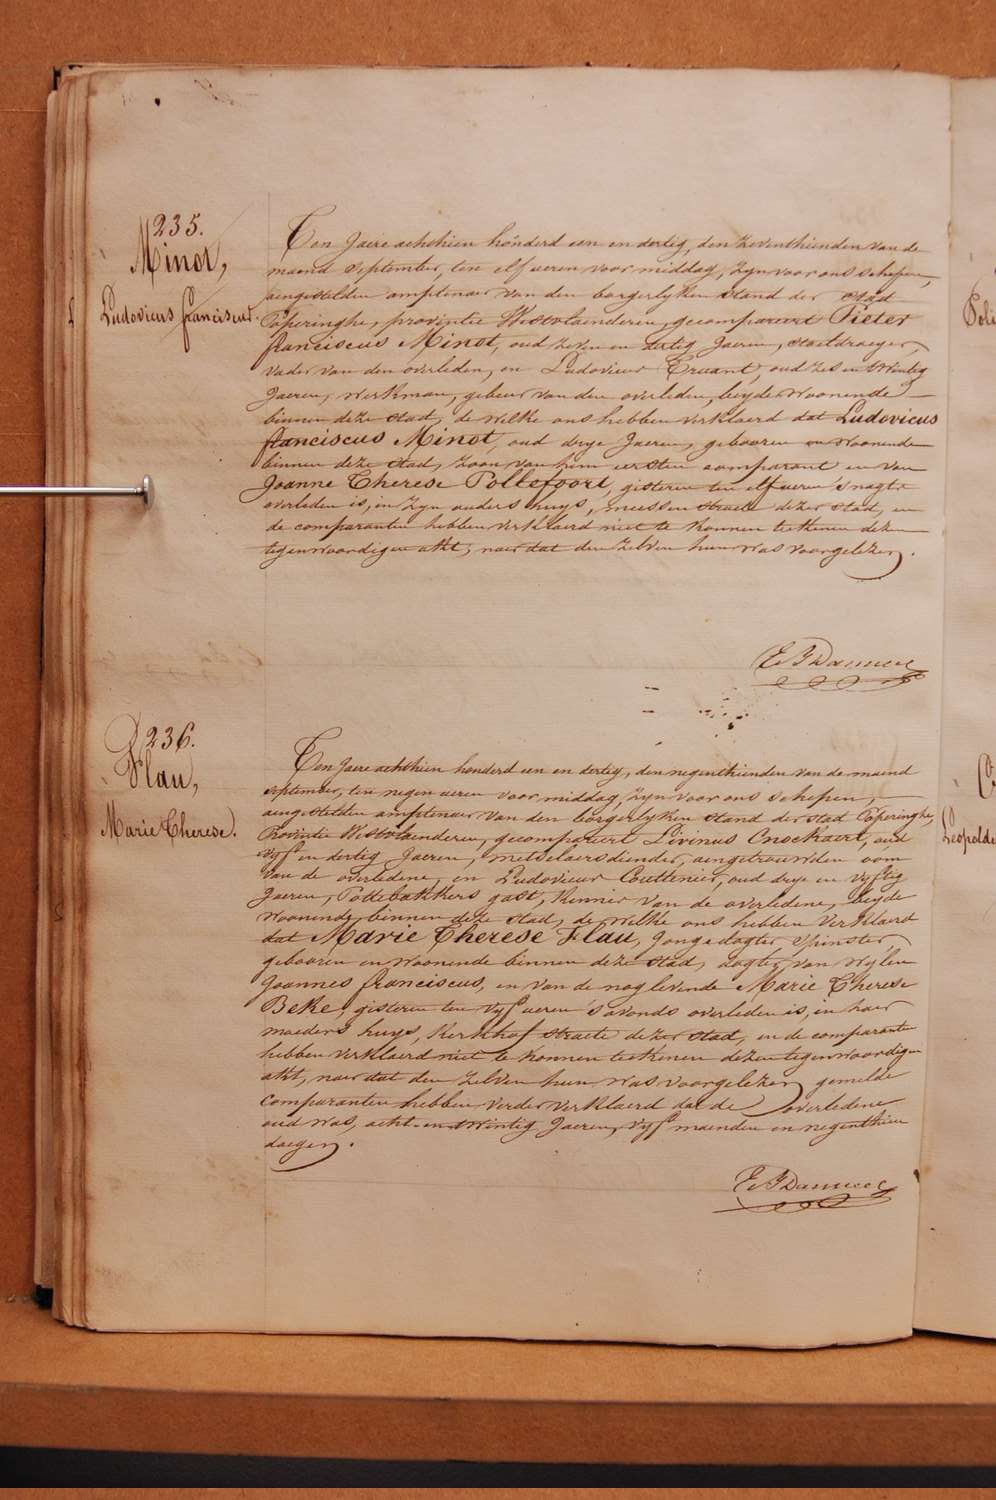 235.
Minot,
Ludovicus franciscus.
Ten Jaere achthien hönderd een en dertig, den zeventhienden van de
maend september, ten elf ueren voor middag, zyn voor ons schepen,
aengestelden amptenaer van den borgerlyken stand der stad
Poperinghe, provintie Westvlaenderen, gecompareert Pieter
franciscus Minot, oud zeven en dertig Jaeren, stoeldraeger,
vader van den overleden, en Ludovicus Truant, oud zes en twintig
Jaeren, werkman, gebeur van den overleden, beyde woonende
binnen deze stad, de welke ons hebben verklaerd dat Ludovicus
franciscus Minot, oud drye Jaeren, gebooren en woonende
binnen deze stad, zoon van hem eersten comparant en van
Joanne Therese Pollefoort, gisteren ten elf ueren 's nagts
overleden is, in zyn ouders huys, meessen straete dezer stad, en
de comparanten hebben verklaerd niet te konnen teekenen dezen
tegenwoordigen akt, naer dat den zelven hun was voorgelezen.
236.
Flau,
Marie Therese.
Ten Jaere achthien honderd een en dertig, den negenthienden van de maend
september, ten negen ueren voor middag, zyn voor ons schepen,
aengestelden amptenaer van den borgerlyken stand der stad Poperinghe,
Provintie Westvlaenderen, gecompareert Livinus Cnockaert, oud
vyf en dertig Jaeren, metselaersdiender, aengetrouwden oom
van de overledene, en Ludovicus Couttenier, oud drye en vyftig
Jaeren, Pottebakkers gast, kennis van de overledene, beyde
woonende binnen deze stad, de welke ons hebben verklaerd
dat Marie Therese Flau, Jonge dogter, spinster,
gebooren en woonende binnen deze stad, dogter van wylen
Joannes franciscus, en van de nog levende Marie Therese
Beke, gisteren ten vyf ueren 's avonds overleden is, in haer
moeders huys, kerkhof straete dezer stad, en de comparanten
hebben verklaerd niet te konnen teekenen dezen tegenwoordigen
akt, naer dat den zelven hun was voorgelezen, gemelde
comparanten hebben verder verklaerd dat de overledene
oud was, acht en twintig Jaeren, vyf maenden en negenthien
daegen.